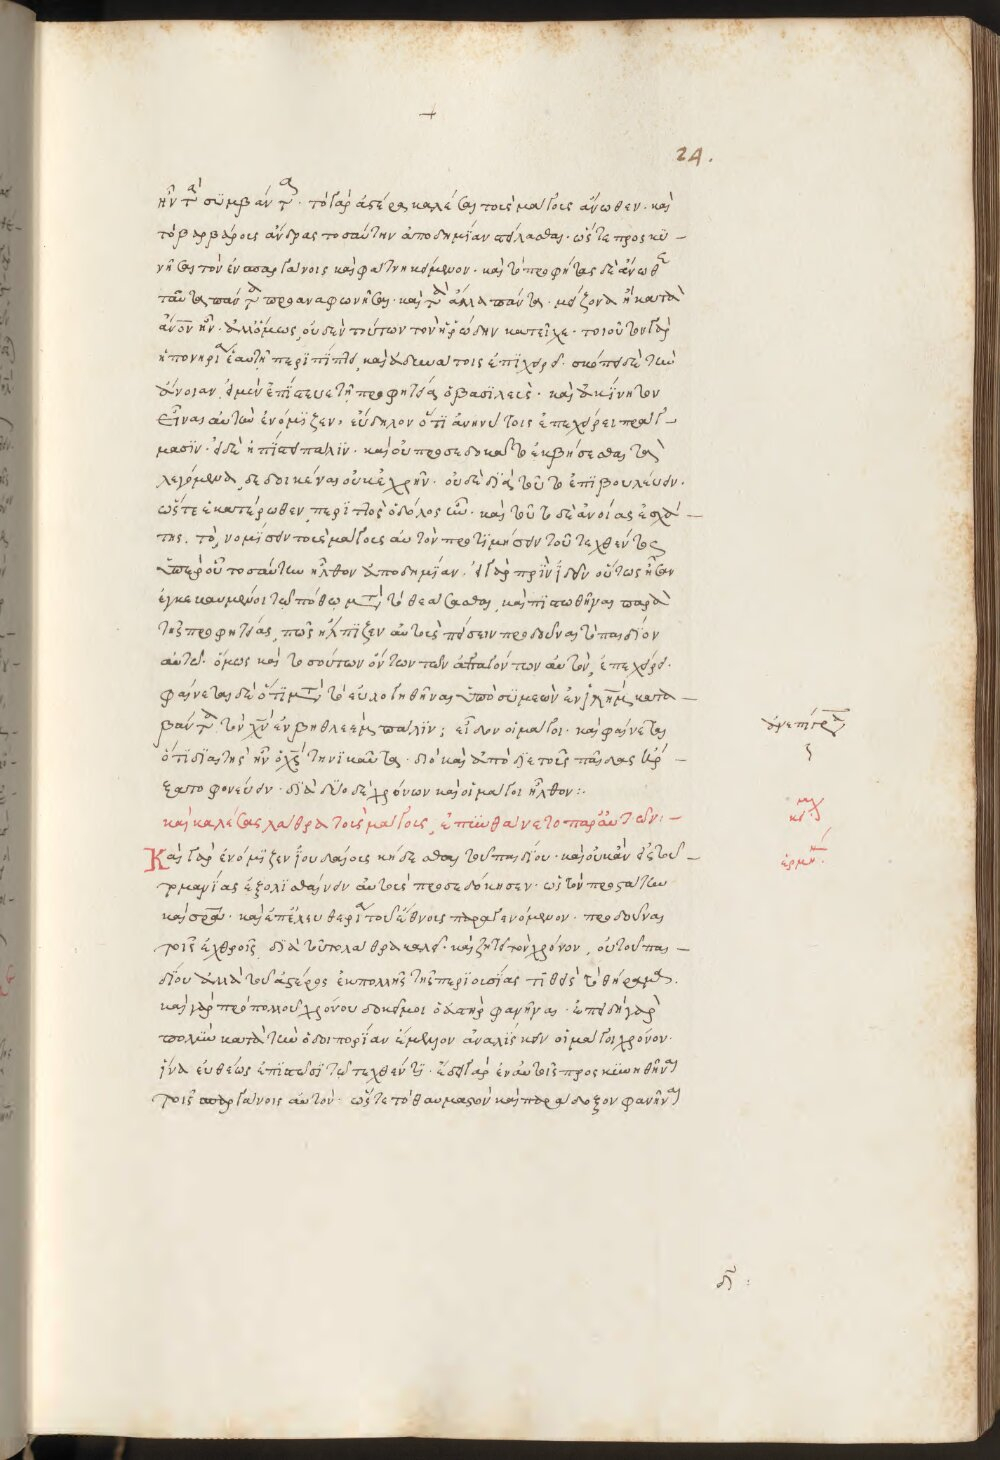 24.
ἦν τὰ συμβάντα. τὸ γὰρ ἀστέρα καλέσαι τοὺς μάγους ἄνωθεν. καὶ
τὸ βαρβάρους ἄνδρας τοσαύτην ἀποδημίαν στείλασθαι. ὥστε προσκυ-
νῆσαι τὸν ἐν σπαργάνοις καὶ φάτνη κείμενον. καὶ τὸ προφήτας δὲ ἄνωθεν
ταῦτα πάντα προαναφωνῆσαι. καὶ τὰ ἄλλα πάντα. μείζονα ἢ κατὰ
ἄνον ἦν. ἀλλ' ὅμως, οὐδὲν τούτων τὸν ἡρώδην κατεῖχε. τοιοῦτον γὰρ
ἡ πονηρία ἑαυτῇ περιπίπτει, καὶ ἀδυνάτοις ἐπιχειρεῖ. σκόπει δὲ τὴν
ἄνοιαν, εἰ μὲν ἐπίστευε τῇ προφητείᾳ ὁ βασιλεὺς. καὶ ἀκίνητον
εἶναι αὐτὴν ἐνόμιζεν, εὔδηλον ὅτι ἀνηνύτοις ἐπεχείρει πράγ-
μασιν. εἰ δὲ ἠπίστει πάλιν. καὶ οὐ προσεδόκα τὸ ἐκβήσεσθαι τὰ
λεγόμενα, δεδοικέναι οὐκ ἐχρῆν. οὐδὲ διὰ τοῦτο ἐπιβουλεύειν.
ὥστε ἑκατέρωθεν, περιττὸς ὁ δόλος ἦν. καὶ τοῦτο δὲ ἀνοίας ἐσχά-
της. τὸ, νομίσειν τοὺς μάγους αὐτὸν προτιμήσειν τοῦ τεχθέντος
ὑπὲρ οὗ τοσαύτην ἦλθον ἀποδημίαν. εἰ γὰρ πρὶν ἰδεῖν οὕτως ἦσαν
ἐγκεκαυμένοι τῷ πόθῳ, μετὰ τὸ θεάσασθαι, καὶ πιστωθῆναι παρὰ
τῆς προφητείας, πῶς ἤλπιζεν αὐτοὺς πείσειν προδοῦναι τὸ παιδίον
αὐτῷ. ὅμως καὶ τοσούτων ὄντων τῶν ἀπαγόντων αὐτὸν, ἐπεχείρει.
φαίνεται δὲ ὅτι μετὰ τὸ εὐλογηθῆναι ὑπὸ συμεὼν ἐν ἰλημ, κατα-
βάντα τὸν χν ἐν βηθλεὲμ πάλιν; εἶδον οἱ μάγοι. καὶ φαίνεται
ὅτι διαιτὴς ἦν ὁ χς τηνικαῦτα. διὸ καὶ ἀπὸ διετοῦς παῖδας ἤρ-
ξατο φονεύειν. διὰ δύο δὲ χρόνων καὶ οἱ μάγοι ἦλθον:.
καὶ καλέσας λάθρα τοὺς μάγους, ἐπυνθάνετο παρ' αὐτῶν:-
Καὶ γὰρ ἐνόμιζεν ἰουδαίους κήδεσθαι τοῦ παιδίου. καὶ οὐκ ἂν εἰς τοῦ-
το μανίας ἐξολισθαίνειν αὐτοὺς προσεδόκησεν. ὡς τὸν προστάτην
καὶ σρα. καὶ ἐπ' ἐλευθερίᾳ τοῦ ἔθνους παραγενόμενον. προδοῦναι
τοῖς ἐχθροῖς, διὰ τοῦτο λάθρα καλεῖ. καὶ ζητεῖ τὸν χρόνον, οὐ τοῦ παι-
δίου ἀλλὰ τοῦ ἀστέρος ἐκ πολλῆς τῆς περιουσίας τιθεὶς τὸ θήραμα.
καὶ γὰρ πρὸ πολλοῦ χρόνου δοκεῖ μοι ὁ ἀστὴρ φανῆναι. ἐπειδὴ γὰρ
πολὺν κατὰ τὴν ὁδοιπορίαν ἔμελλον ἀναλίσκειν οἱ μάγοι χρόνον.
ἵνα εὐθέως ἐπιστῶσι τῷ τεχθέντι. ἔδει γὰρ ἐν αὐτοῖς προσκυνηθῆναι
τοῖς σπαργάνοις αὐτὸν. ὥστε τὸ θαυμαστὸν καὶ παράδοξον φανῆναι
κεφ
ἑρμη